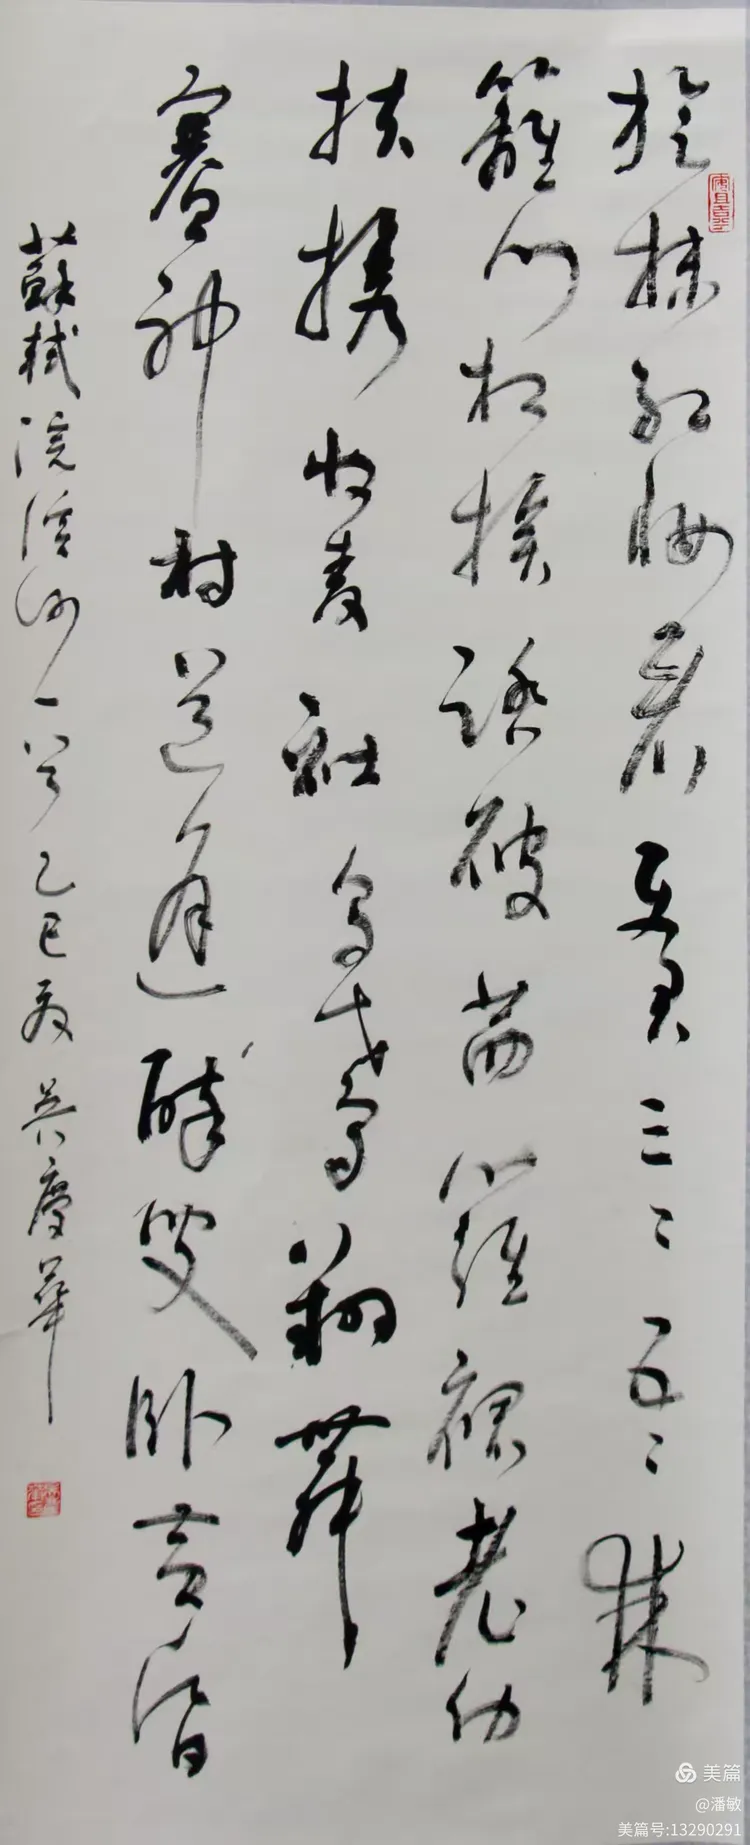 旋抹红妆看使君三〻五〻棘
籬门相挨踏破茜羅裙老幼
扶携收麦社烏鳶翔舞
賽神村道逢醉叟卧黄昏
蘇軾浣溪沙一首乙巳夏吴慶華
美篇
@潘敏
美篇号:13290291